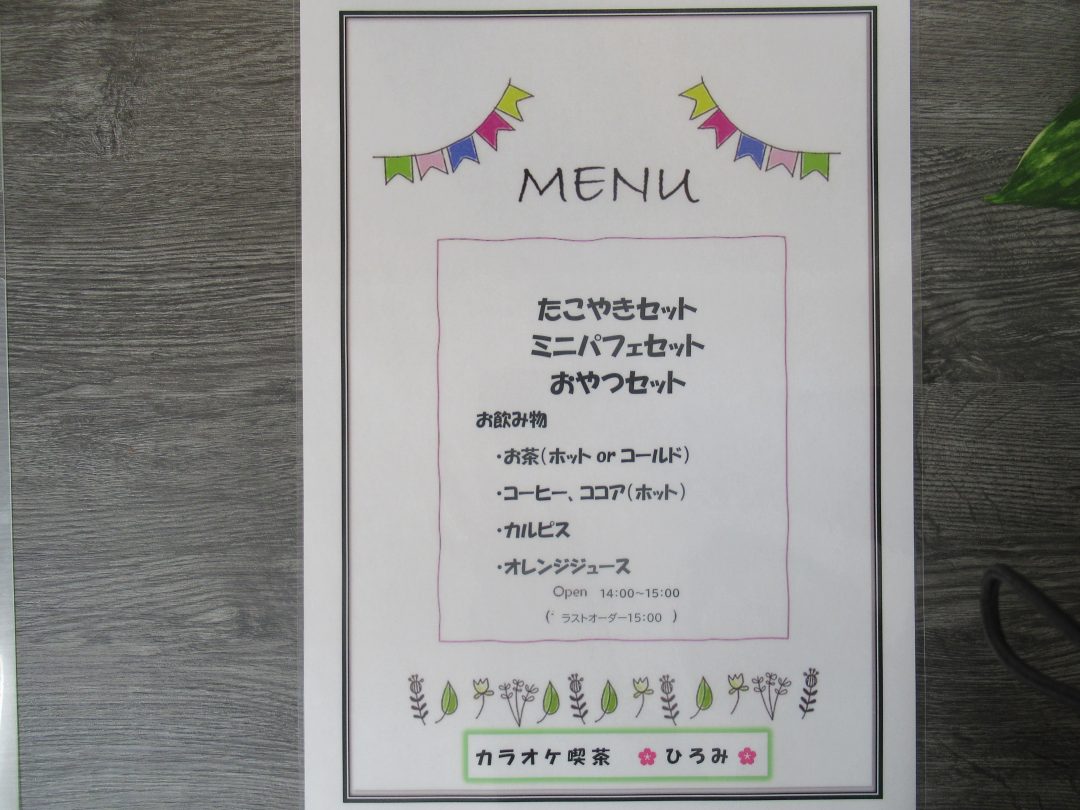 MENU
たこやきセット
ミニパフェセット
おやつセット
お飲み物
・お茶(ホット or コールド)
・コーヒー、ココア(ホット)
・カルピス
・オレンジジュース
Open 14:00~15:00
(ラストオーダー15:00 )
カラオケ喫茶 ひろみ